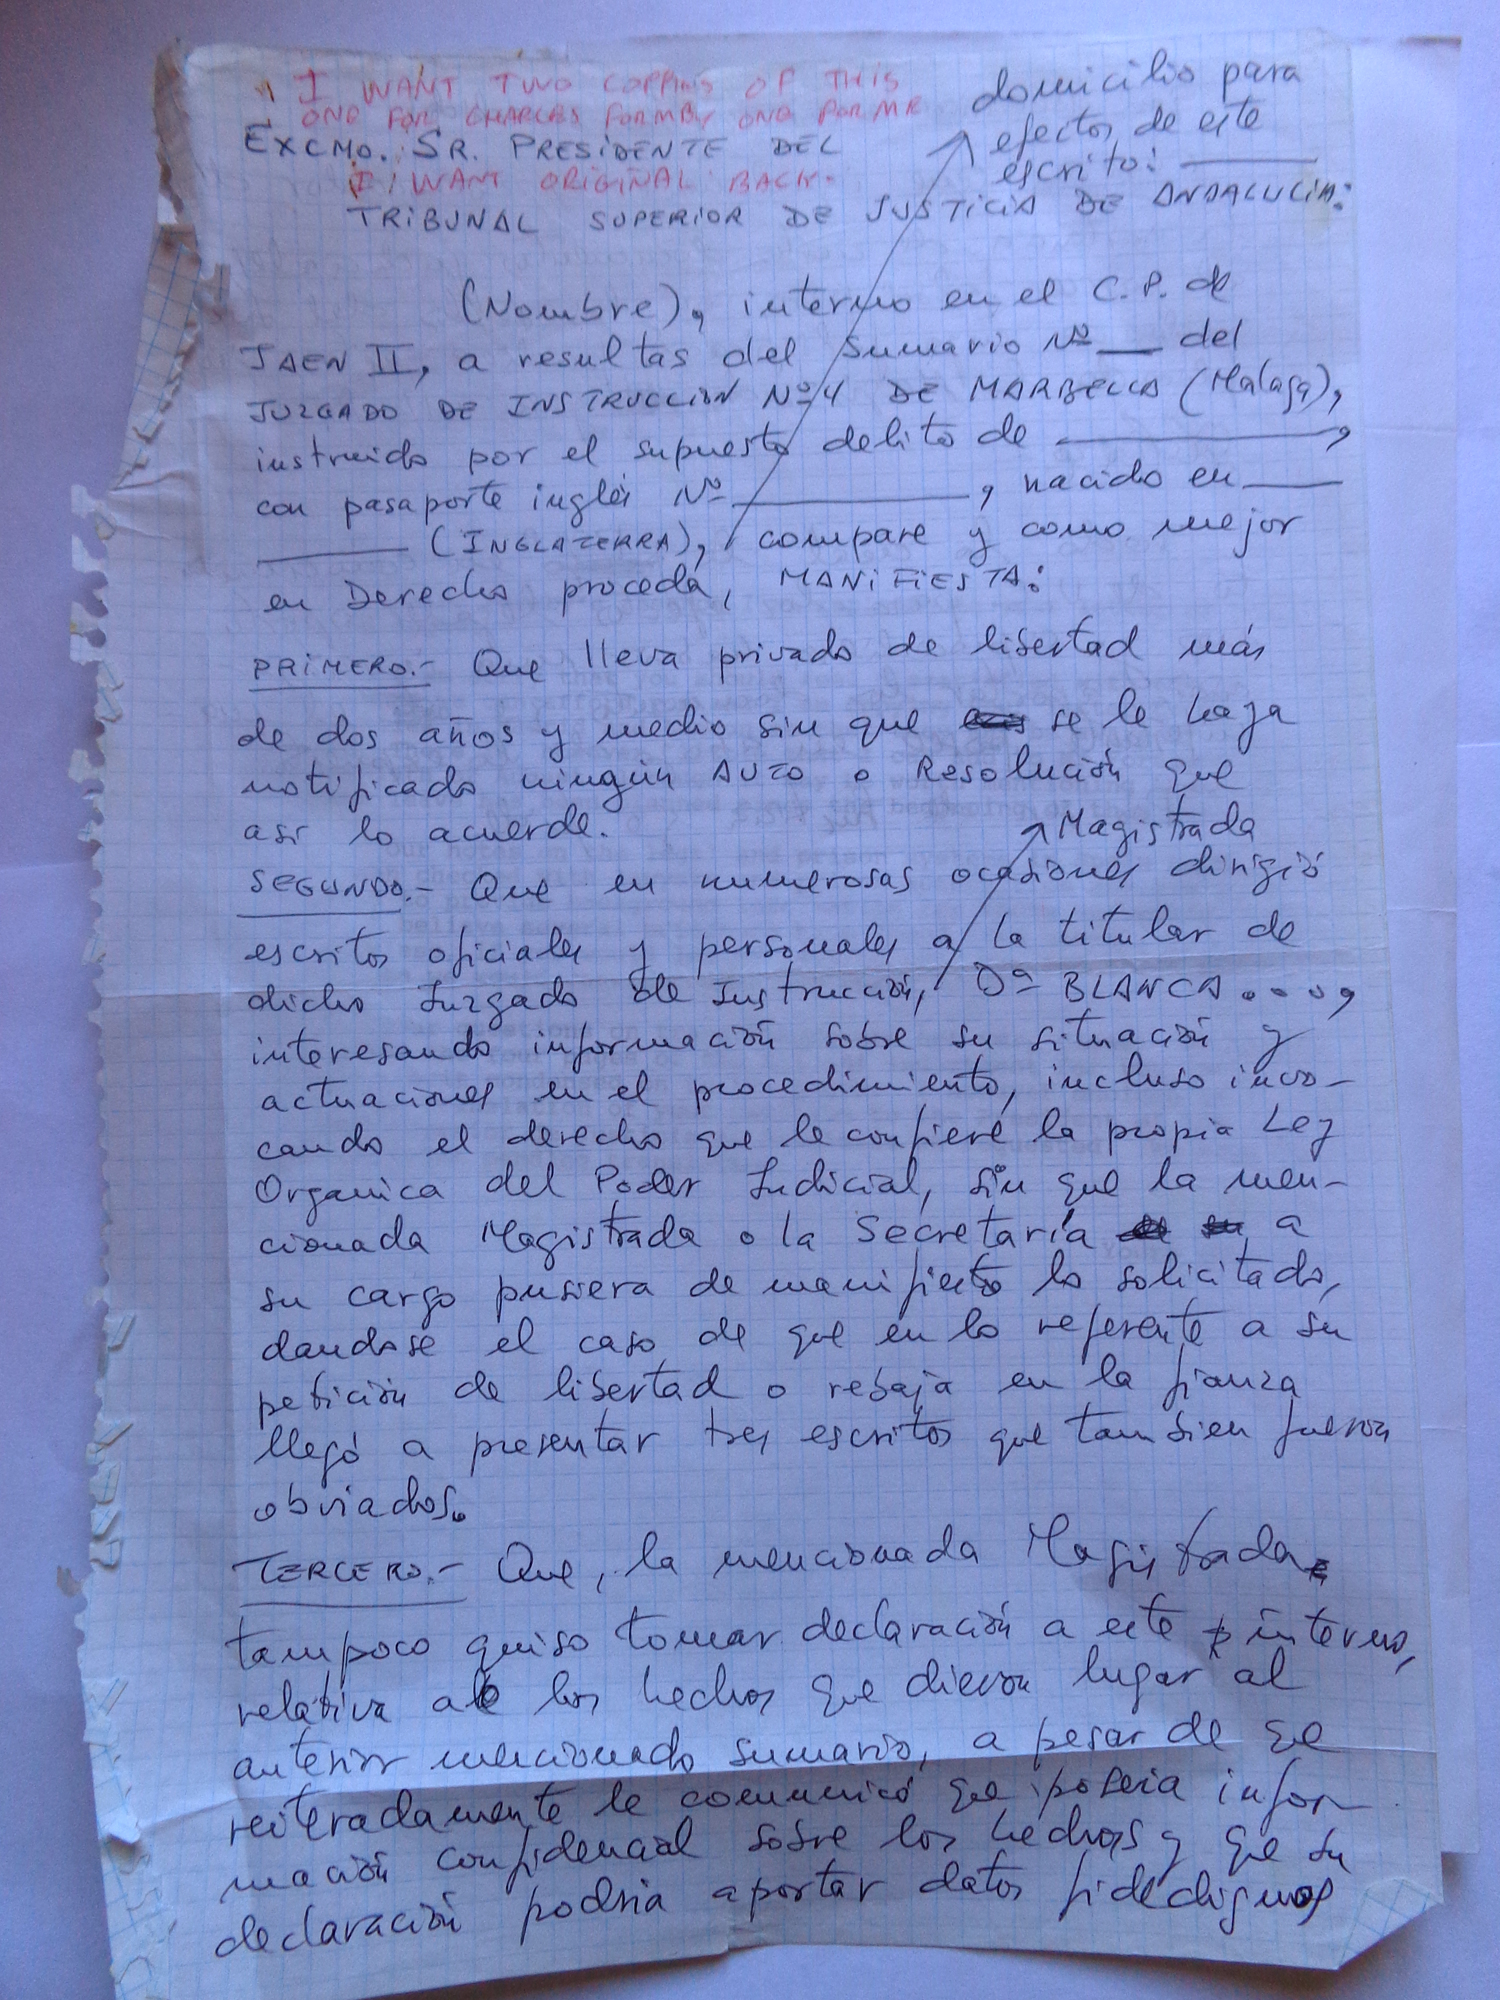 I WANT TWO COPPIES OF THIS
ONE FOR CHARLES FORMBY ONE FOR ME
EXCMO. SR. PRESIDENTE DEL
I WANT ORIGINAL BACK.
TRIBUNAL SUPERIOR DE JUSTICIA DE ANDALUCIA:
domicilio para
efectos de este
escrito:
(Nombre), interno en el C.P. de
JAEN II, a resultas del Sumario Nº __ del
JUZGADO DE INSTRUCCIÓN Nº 4 DE MARBELLA (Málaga),
instruido por el supuesto delito de ________,
con pasaporte inglés Nº ________, nacido en ____
______ (INGLATERRA), compare y como mejor
en Derecho proceda, MANIFIESTA:
PRIMERO.- Que lleva privado de libertad más
de dos años y medio sin que se le haya
notificado ningún AUTO o Resolución que
así lo acuerde.
Magistrada
SEGUNDO.- Que en numerosas ocasiones dirigió
escritos oficiales y personales a la titular de
dicho Juzgado de Instrucción, Dª BLANCA....,
interesando información sobre su situación y
actuaciones en el procedimiento, incluso invo-
cando el derecho que le confiere la propia Ley
Organica del Poder Judicial, sin que la men-
cionada Magistrada o la Secretaría a
su cargo pusiera de manifiesto lo solicitado,
dandose el caso de que en lo referente a su
petición de libertad o rebaja en la fianza
llegó a presentar tres escritos que tambien fueron
obviados.
TERCERO.- Que, la mencionada Magistrada
tampoco quiso tomar declaración a este interno,
relativa a los hechos que dieron lugar al
anterior mencionado sumario, a pesar de que
reiteradamente le comunicó que poseia infor-
mación confidencial sobre los hechos y que su
declaración podria aportar datos fidedignos